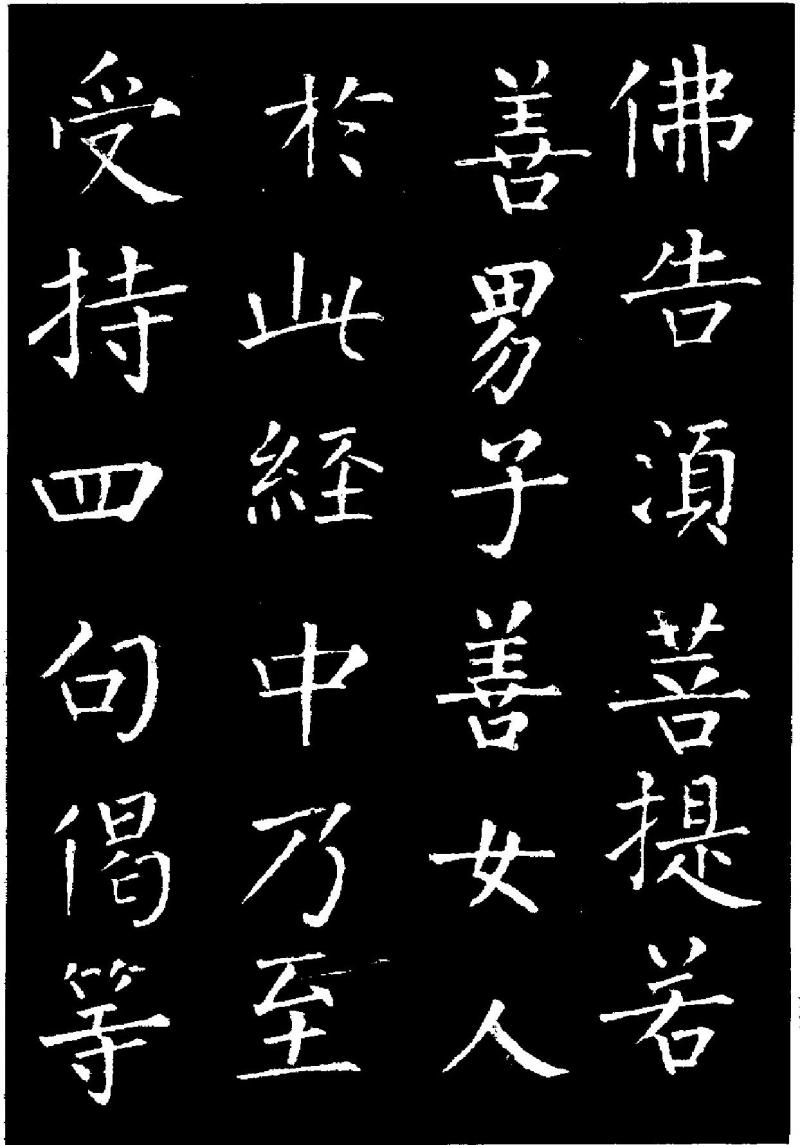 佛告湏菩提若
善男子善女人
於此經中乃至
受持四句偈等